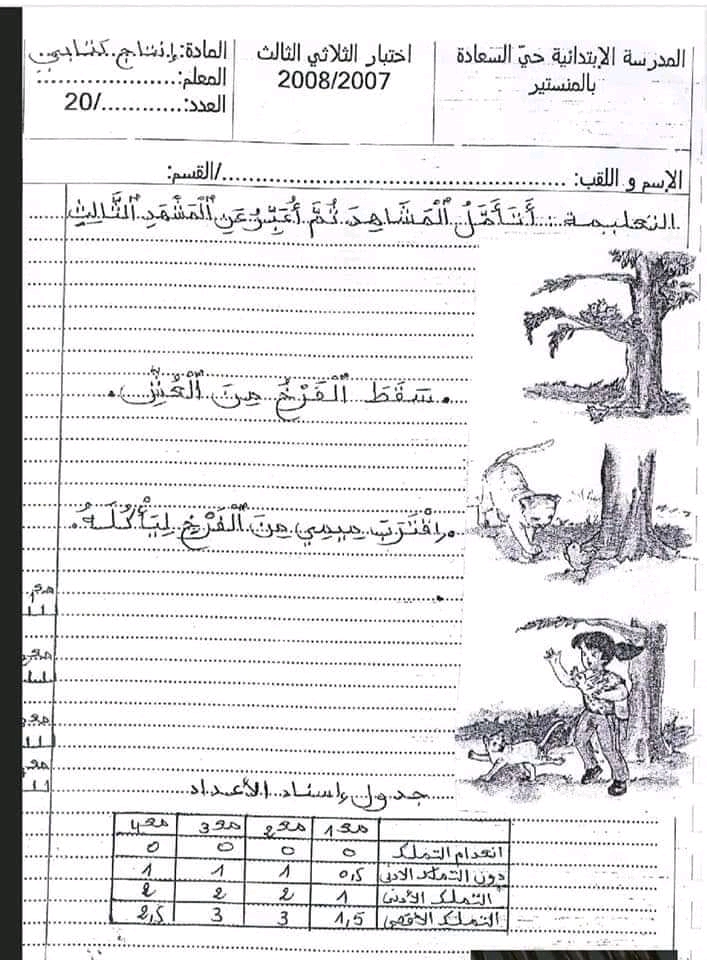 المدرسة الإبتدائية حيّ السعادة
بالمنستير
اختبار الثلاثي الثالث
2008/2007
المادة: إنتاج كتابي
المعلم:....................
العدد:............/20
الإسم و اللقب: ................................................/القسم:
التعليمة: أَتَأَمَّلُ الْمَشَاهِدَ ثُمَّ أُعَبِّرُ عَنِ الْمَشْهَدِ الثَّالِثِ
• سَقَطَ الْفَرْخُ مِنَ الْعُشِّ.
• اِقْتَرَبَ مِيمِي مِنَ الْفَرْخِ لِيَأْكُلَهُ.
•
مع1
مع2
مع3
مع4
جدول إسناد الأعداد
مع1 مع2 مع3 مع4
انعدام التملك 0 0 0 0
دون التملك الأدنى 0,5 1 1 1
التملك الأدنى 1 2 2 2
التملك الأقصى 1,5 3 3 2,5